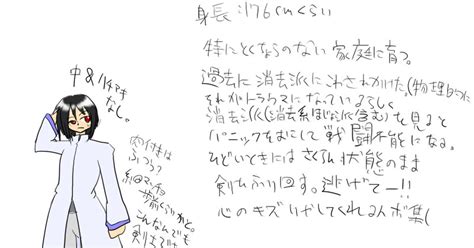 身長:176cmくらい
特にとくならのない家庭に育つ。
過去に消去派にこわされかけた(物理的に)
それがトラウマになっているらしく
消去派(消去系ほじょに含む)を見ると
パニックをおこして戦闘不能になる。
ひどいときにはさくらん状態のまま
剣をふり回す。逃げてー!!
心のキズいやしてくれる人ボ集(
中&ハチマキ
なし。
肉付きは
ふつう?
細マッチョ
こんなんでも
剣士です